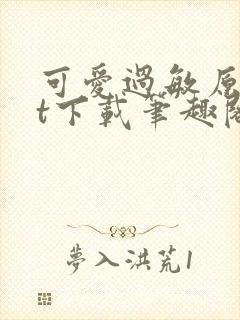 可愛過敏原
t下載筆趣閣
夢入洪荒1